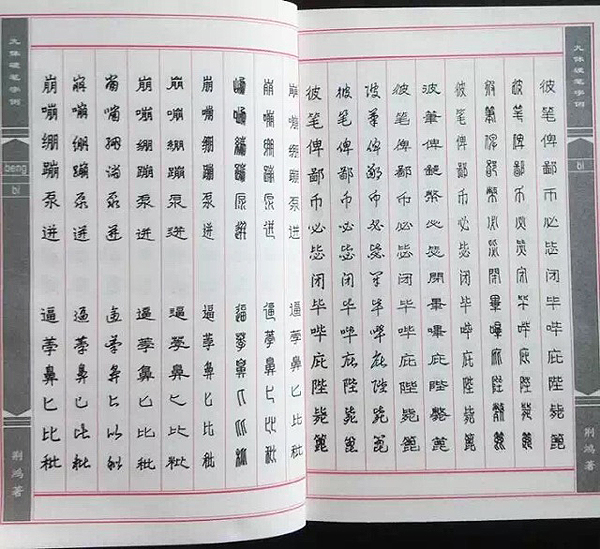 九体硬笔字例
beng
bi
荆鸿著
崩嘣绷蹦泵迸逼荸鼻匕比秕
崩嘣绷蹦泵迸逼荸鼻匕比秕
崩嘣绷蹦泵迸逼荸鼻匕比秕
崩嘣绷蹦泵迸逼荸鼻匕比秕
崩嘣绷蹦泵迸逼荸鼻匕比秕
崩嘣绷蹦泵迸逼荸鼻匕比秕
崩嘣繃蹦泵迸逼荸鼻匕比秕
崩嘣绷蹦泵迸逼荸鼻匕比秕
崩嘣绷蹦泵迸逼荸鼻匕比秕
彼笔俾鄙币必毖闭毕哔庇陛毙篦
彼笔俾鄙币必毖闭毕哔庇陛毙篦
彼笔俾鄙币必毖闭毕哔庇陛毙篦
彼笔俾鄙币必毖闭毕哔庇陛毙篦
彼筆俾鄙幣必毖閉畢嗶庇陛斃篦
彼笔俾鄙币必毖闭毕哔庇陛毙篦
彼筆俾鄙幣必毖閉畢嗶庇陛斃篦
彼笔俾鄙币必毖闭毕哔庇陛毙篦
彼笔俾鄙币必毖闭毕哔庇陛毙篦
九体硬笔字例
bi
荆鸿著